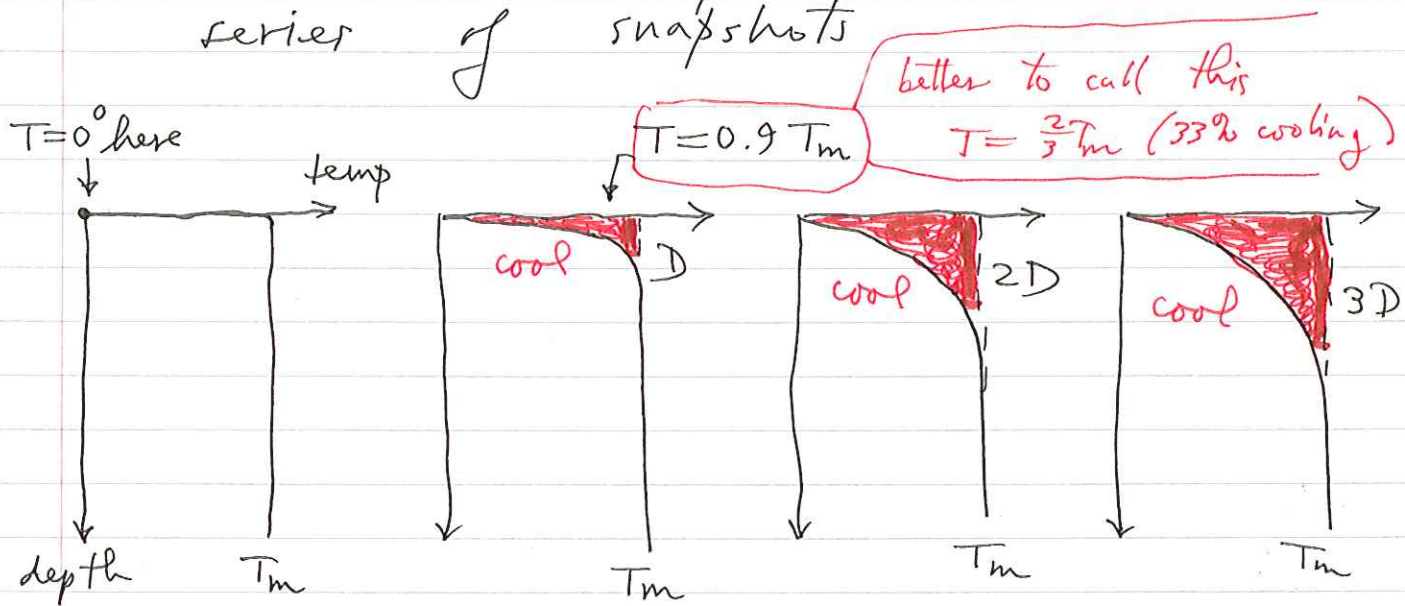 series of snapshots
better to call this
T = 2/3 Tm (33% cooling)
T=0° here
T=0.9 Tm
temp
cool
D
cool
2D
cool
3D
depth
Tm
Tm
Tm
Tm